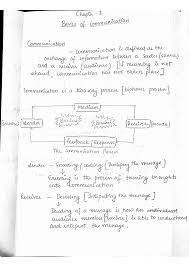 Chapter - 1
Basics of Communication
Communication
- Communication is defined as the
exchange of information between a sender (source)
and a receiver (audience) [if meaning is not
shared, communication has not taken place]
Communication is a two-way process [biphasic process]
Medium
Sender
Receiver
Feedback / Response
The communication process
Sender - Encoding / coding [ the message]
Encoding is the process of turning thoughts
into communication
Receiver - Decoding [Interpreting the message]
Decoding of a message is how an individual
audience member (receiver) is able to understand
and interpret the message.